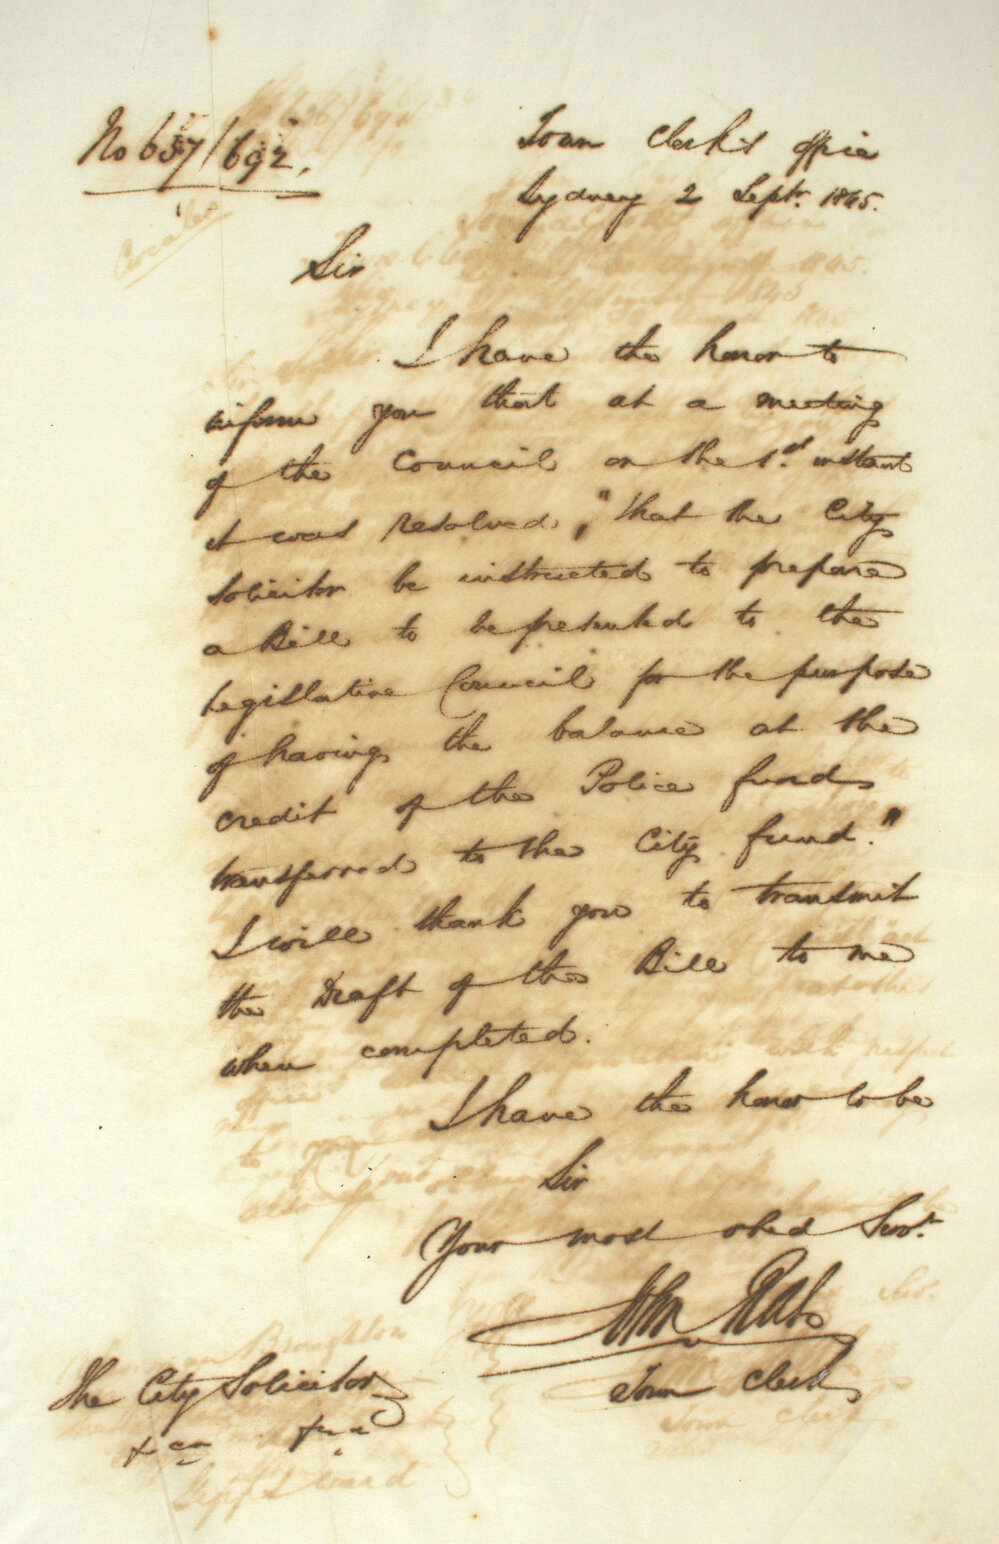 No 657/692.
Town Clerk's Office
Sydney 2 Septr. 1845.
Sir
I have the honor to
inform you that at a meeting
of the Council on the 1st. instant
it was resolved, "that the City
Solicitor be instructed to prepare
a Bill to be presented to the
Legislative Council for the purpose
of having the balance at the
credit of the Police fund
transferred to the City fund."
I will thank you to transmit
the Draft of the Bill to me
when completed.
I have the honor to be
Sir
Your most obed Servt.
John
Town Clerk
The City Solicitor
&ca &ca